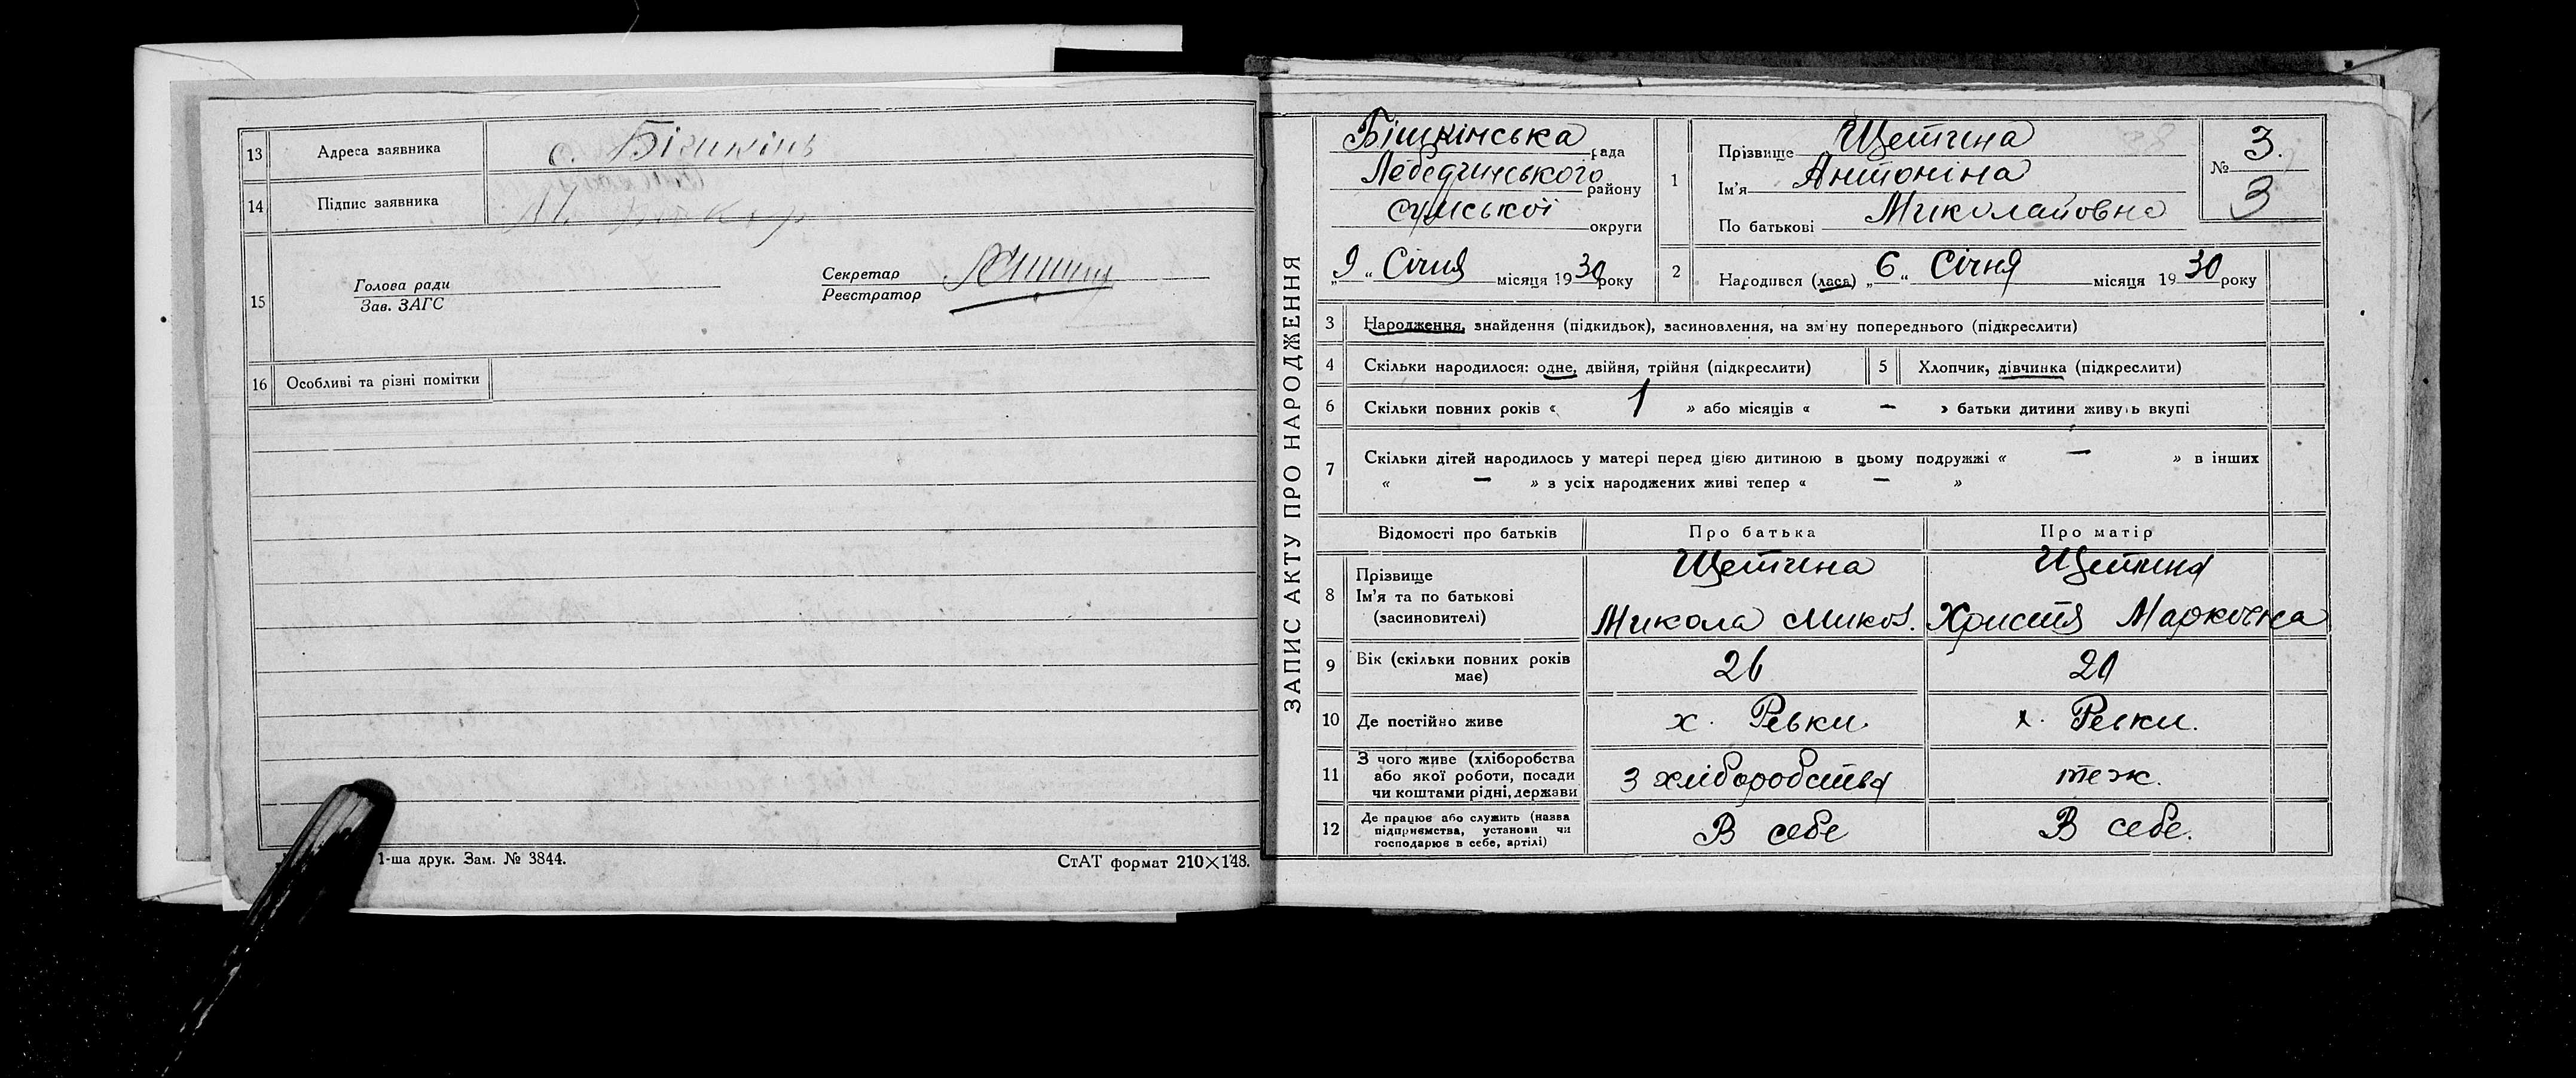 13 Адреса заявника с. Бішкінь
14 Підпис заявника
15 Голова ради
Зав. ЗАГС
Секретар
Реєстратор
16 Особливі та різні помітки
1-ша друк. Зам. № 3844.
СтАТ формат 210×148.
ЗАПИС АКТУ ПРО НАРОДЖЕННЯ
Бішкінська рада
Лебединського району
Сумської округи
„9„ Січня місяця 1930 року
1 Прізвище Щетина
Ім'я Антоніна
По батькові Миколаївна
№ 3.
3
2 Народився (лася) „6„ Січня місяця 1930 року
3 Народження, знайдення (підкидьок), засиновлення, на зміну попереднього (підкреслити)
4 Скільки народилося: одне, двійня, трійня (підкреслити)
5 Хлопчик, дівчинка (підкреслити)
6 Скільки повних років « 1 » або місяців « — » батьки дитини живуть вкупі
7 Скільки дітей народилось у матері перед цією дитиною в цьому подружжі « — » в інших
« — » з усіх народжених живі тепер « — »
Відомості про батьків Про батька Про матір
8 Прізвище
Ім'я та по батькові
(засиновителі)
Щетина
Микола Микол.
Щетина
Христя Марковна
9 Вік (скільки повних років
має)
26 20
10 Де постійно живе х. Реьки х. Реьки.
11 З чого живе (хліборобства
або якої роботи, посади
чи коштами рідні, держави
З хліборобства теж.
12 Де працює або служить (назва
підприємства, установи чи
господарює в себе, артілі)
В себе В себе.